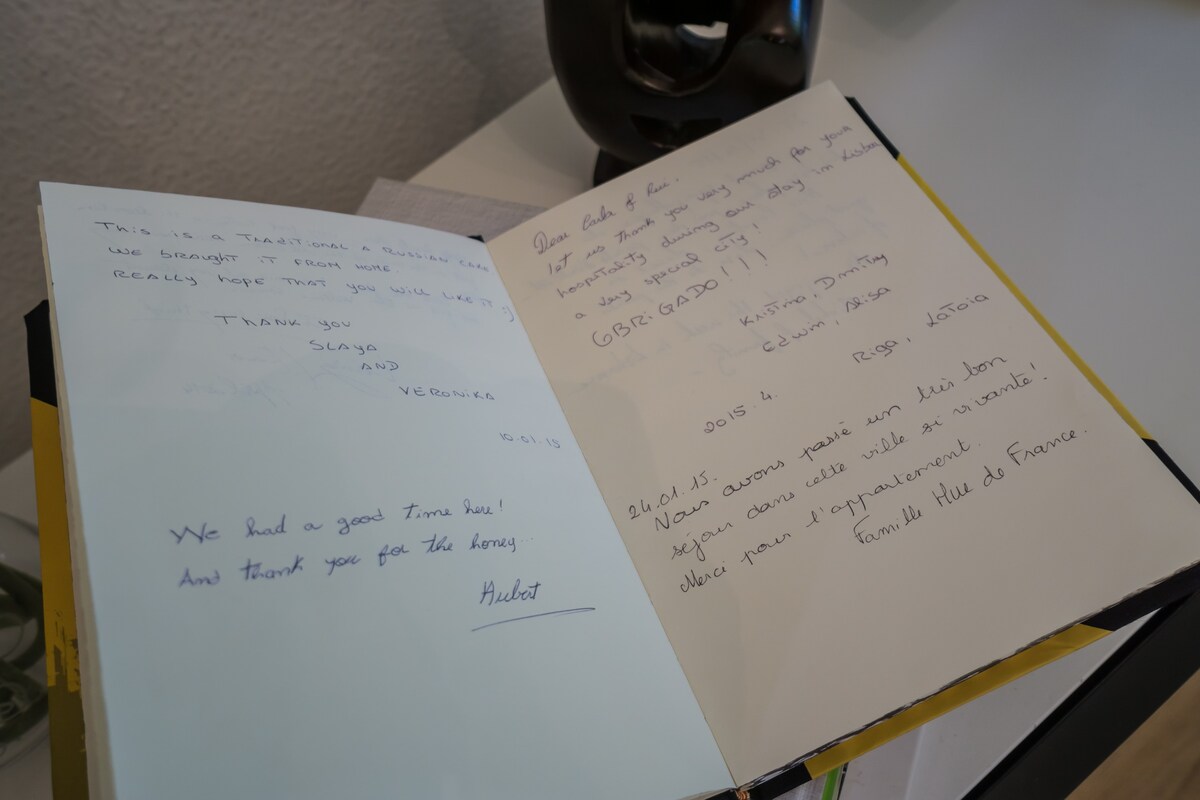 THIS IS A TRADITIONAL A RUSSIAN CAKE
WE BRAUGHT IT FROM HOME
REALLY HOPE THAT YOU WILL LIKE IT :)
THANK YOU
SLAYA
AND
VERONIKA
10.01.15
We had a good time here!
And thank you for the honey...
Aubert
Dear Carla & Rui,
let us thank you very much for your
hospitality during our stay in Lisboa
a very special city!
OBRiGADO!!!
Kristina, Dmitry
Edwin, Alisa
Riga, Latvia
2015.4.
24.01.15.
Nous avons passé un très bon
séjour dans cette ville si vivante!
Merci pour l'appartement.
Famille Hue de France.